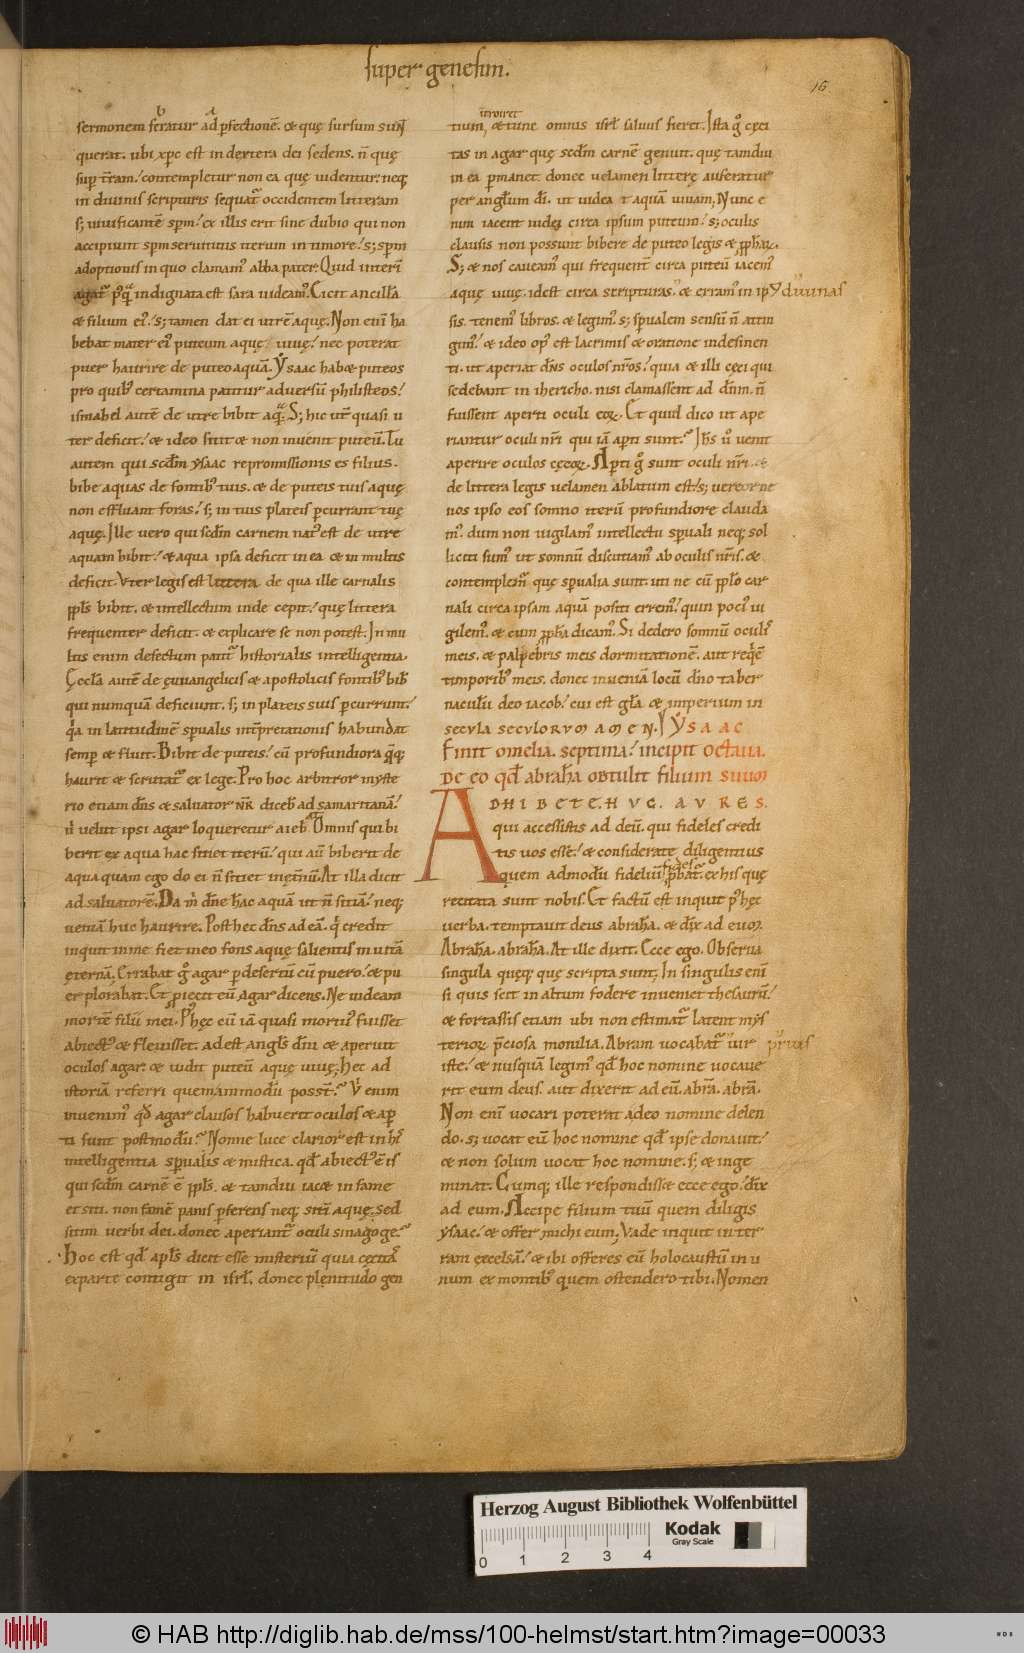 super genesim.
16
sermonem feratur ad pfectionē. & quę sursum sunt
querat. ubi xp̄c est in dextera dei sedens. n̄ quę
sup t̄ram. contempletur non ea quę uidentur. neq;
in diuinis scripturis sequat᷑ occidentem litteram
s; uiuificantē spm. ex illis erit sine dubio qui non
accipiunt spm seruitutis iterum in timore. s; spm
adoptionis in quo clamam᷒ abba pater. Quid interī
agat᷑ indignata est sara uideam᷒. Eicit ancillā
& filium ei᷒. s; tamen dat ei utrē aquę. Non enī ha
bebat mater ei᷒ puteum aquę uiuę. nec poterat
puer haurire de puteo aquā. Ysaac hab& puteos
pro quib᷒ certamina patitur aduersū philisteos.
ismahel autē de utre bibit aquā. S; hic utˀ quasi u
ter deficit. & ideo sitit & non inuenit puteū. Tu
autem qui scdm ysaac repromissionis es filius.
bibe aquas de fontib᷒ tuis. & de puteis tuis aquę
non effluant foras. s; in tuis plateis pcurrant tuę
aquę. Ille uero qui scdm carnem nat᷒ est de utre
aquam bibit. & aqua ipsa deficit in ea & in multis
deficit. Vter legis est littera de qua ille carnalis
ppl̄s bibit. & intellectum inde cepit. quę littera
frequenter deficit. & explicare se non potest. In mu
ltis enim defectum patit᷑ historialis intelligentia.
Ęccl̄a autē de ęuuangelicis & apostolicis fontib᷒ bibit
qui numquā deficiunt. s; in plateis suis pcurrunt
q̄a in latitudinē spualis int̄pretationis habundat
semp & fluit. Bibit de puteis. cū profundiora quęq;
haurit & scrutat᷑ ex lege. Pro hoc arbitror myste
rio etiam dn̄s & saluator n̄r dicebat ad samaritanā.
ū uelut ipsi agar loqueretur aieb̄. Omnis qui bi
berit ex aqua hac sitiet iterū. qui aū biberit de
aqua quam ego do ei n̄ sitiet inęt̄nū. At illa dicit
ad saluatorē. Da m̄ dn̄e hac aquā ut n̄ sitiā. neq;
ueniā huc haurire. Post hec dn̄s ad eā. q̄ credit
inquit in me fiet in eo fons aquę salientis in uitā
ęternā. Errabat ḡ agar p desertū cū puero. & pu
er plorabat. Et proiecit eū agar dicens. Ne uideam
mortē filii mei. Post hęc cū iā quasi mortu᷒ fuisset
abiect᷒ & fleuisset. adest angl̄s dn̄i & aperuit
oculos agar. & uidit puteū aquę uiuę; Hec ad
istoriā referri quemammodū possnt̄. Vbi enim
inuenim᷒ qd̄ agar clausos habuerit oculos & aper
ti sunt postmodū. Nonne luce clarior est in h᷒
intelligentia spualis & mistica. qd̄ abiect᷒ ē is
qui scdm carnē ē ppl̄s. & tamdiu iac& in fame
et siti. non famē panis pferens neq; sitī aquę. sed
sitim uerbi dei. donec aperiant᷑ oculi sinagoge.
Hoc est qd̄ apl̄s dicit esse misteriū quia cęcitas
ex parte contigit in isrl̄. donec plenitudo gen
introiret
tium, & tunc omnis isrl̄ saluus fieret. Ista ḡ cęci
tas in agar quę scdm carnē genuit. quę tamdiu
in ea pmanet. donec uelamen litterę auferatur
per anglum dī. ut uidea t aquā uiuam. Nunc e
nim iacent iudei circa ipsum puteum. s; oculis
clausis non possunt bibere de puteo legis & pphaꝝ.
S; & nos caueam᷒ qui frequent̄ circa puteū iacem᷒
aquę uiuę. idest circa scripturas diuinas & erram᷒ in ip
sis. tenem᷒ libros. & legim᷒. s; spualem sensū n̄ attin
gim᷒. & ideo op᷒ est lacrimis & oratione indesinen
ti. ut aperiat dn̄s oculos nr̄os. quia & illi cęci qui
sedebant in ihericho. nisi clamassent ad dn̄m. n̄
fuissent aperti oculi eoꝝ. Et quid dico ut ape
riantur oculi nr̄i qui iā apti sunt. Ih̄s ū uenit
aperire oculos cęcoꝝ. Apti ḡ sunt oculi nr̄i. &
de littera legis uelamen ablatum est. s; uereor ne
nos ipso eos somno iterū profundiore clauda
m᷒. dum non uigilam᷒ intellectu spuali neq; sol
liciti sum᷒ ut somnū discutiam᷒ ab oculis nr̄is. &
contemplem᷑ quę spualia sunt. uti ne cū pplo car
nali circa ipsam aquā positi errem᷒. quin poci᷒ ui
gilem᷒. & cum ppha dicam᷒. Si dedero somnū oculis
meis. & palpebris meis dormitationē. aut requiē
timporib᷒ meis. donec inueniā locū dn̄o taber
naculū deo iacob. cui est gl̄a & imperium in
secula seculorum AMEN. YSAAC
Finit omelia. septima. incipit octaua.
De eo qd̄ abrahā obtulit filium suum
ADHIBETE HVC. AVRES.
qui accessistis ad deū. qui fideles credi
tis uos esse. & considerate diligentius
quem admodū fidelium fides pbat᷑. ex his quę
recitata sunt nobis. Et factū est inquit p᷒ hęc
uerba. temptauit deus abrahā. & dix̄ ad eum.
Abrahā. abrahā. At ille dixit. Ecce ego. Obserua
singula quęq; quę scripta sunt. In singulis enī
si quis scit in altum fodere inueniet thesaurū.
& fortassis etiam ubi non estimat᷑ latent mys
terioꝝ p̄ciosa monilia. Abram uocabat᷑ uir prius
iste. & nusquā legim᷒ qd̄ hoc nomine uocaue
rit eum deus. aut dixerit ad eū. abrā. abrā.
Non enī uocari poterat a deo nomine delen
do. s; uocat eū hoc nomine qd̄ ipse donauit.
& non solum uocat hoc nomine. s; & inge
minat. Cumq; ille respondiss& ecce ego. dix̄
ad eum. Accipe filium tuū quem diligis
ysaac. & offer michi eum. Vade inquit in ter
ram excelsā. & ibi offeres eū holocaustū in u
num ex montib᷒ quem ostendero tibi. Nomen
Herzog August Bibliothek Wolfenbüttel
0 1 2 3 4
Kodak
Gray Scale
© HAB http://diglib.hab.de/mss/100-helmst/start.htm?image=00033